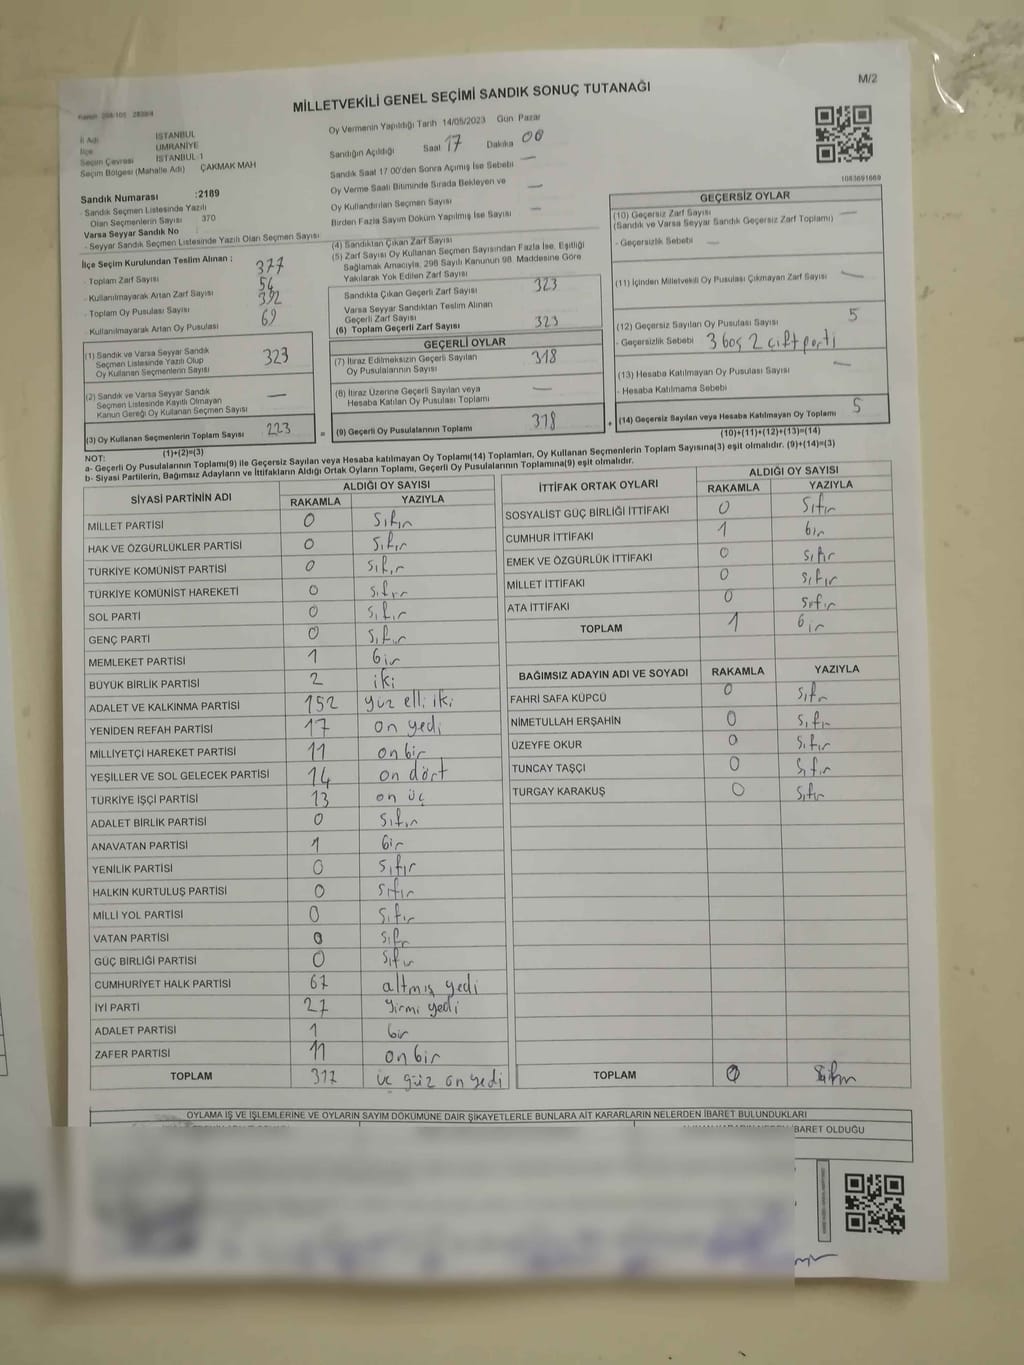 M/2
MİLLETVEKİLİ GENEL SEÇİMİ SANDIK SONUÇ TUTANAĞI
İl Adı İSTANBUL
İlçe ÜMRANİYE
Seçim Çevresi İSTANBUL 1
Seçim Bölgesi (Mahalle Adı) ÇAKMAK MAH
Sandık Numarası :2189
- Sandık Seçmen Listesinde Yazılı
Olan Seçmenlerin Sayısı 370
Varsa Seyyar Sandık No
- Seyyar Sandık Seçmen Listesinde Yazılı Olan Seçmen Sayısı
Oy Vermenin Yapıldığı Tarih 14/05/2023 Gün Pazar
Sandığın Açıldığı Saat 17 Dakika 00
Sandık Saat 17:00'den Sonra Açımış İse Sebebi —
Oy Verme Saati Bitiminde Sırada Bekleyen ve
Oy Kullandırılan Seçmen Sayısı —
Birden Fazla Sayım Döküm Yapılmış İse Sayısı —
1083691669
İlçe Seçim Kurulundan Teslim Alınan :
- Toplam Zarf Sayısı 377
- Kullanılmayarak Artan Zarf Sayısı 54
- Toplam Oy Pusulası Sayısı 392
- Kullanılmayarak Artan Oy Pusulası 69
(1) Sandık ve Varsa Seyyar Sandık
Seçmen Listesinde Yazılı Olup
Oy Kullanan Seçmenlerin Sayısı 323
(2) Sandık ve Varsa Seyyar Sandık
Seçmen Listesinde Kayıtlı Olmayan
Kanun Gereği Oy Kullanan Seçmen Sayısı —
(3) Oy Kullanan Seçmenlerin Toplam Sayısı 223
(1)+(2)=(3)
(4) Sandıktan Çıkan Zarf Sayısı
(5) Zarf Sayısı Oy Kullanan Seçmen Sayısından Fazla İse, Eşitliği
Sağlamak Amacıyla, 298 Sayılı Kanunun 98. Maddesine Göre
Yakılarak Yok Edilen Zarf Sayısı
Sandıkta Çıkan Geçerli Zarf Sayısı 323
Varsa Seyyar Sandıktan Teslim Alınan
Geçerli Zarf Sayısı
(6) Toplam Geçerli Zarf Sayısı 323
GEÇERLİ OYLAR
(7) İtiraz Edilmeksizin Geçerli Sayılan
Oy Pusulalarının Sayısı 318
(8) İtiraz Üzerine Geçerli Sayılan veya
Hesaba Katılan Oy Pusulası Toplamı —
= (9) Geçerli Oy Pusulalarının Toplamı 318
GEÇERSİZ OYLAR
(10) Geçersiz Zarf Sayısı —
(Sandık ve Varsa Seyyar Sandık Geçersiz Zarf Toplamı)
- Geçersizlik Sebebi —
(11) İçinden Milletvekili Oy Pusulası Çıkmayan Zarf Sayısı —
(12) Geçersiz Sayılan Oy Pusulası Sayısı 5
- Geçersizlik Sebebi 3 boş 2 çift parti
(13) Hesaba Katılmayan Oy Pusulası Sayısı —
- Hesaba Katılmama Sebebi
+ (14) Geçersiz Sayılan veya Hesaba Katılmayan Oy Toplamı 5
(10)+(11)+(12)+(13)=(14)
NOT:
a- Geçerli Oy Pusulalarının Toplamı(9) ile Geçersiz Sayılan veya Hesaba katılmayan Oy Toplamı(14) Toplamları, Oy Kullanan Seçmenlerin Toplam Sayısına(3) eşit olmalıdır. (9)+(14)=(3)
b- Siyasi Partilerin, Bağımsız Adayların ve İttifakların Aldığı Ortak Oyların Toplamı, Geçerli Oy Pusulalarının Toplamına(9) eşit olmalıdır.
SİYASİ PARTİNİN ADI ALDIĞI OY SAYISI
RAKAMLA YAZIYLA
MİLLET PARTİSİ 0 Sıfır
HAK VE ÖZGÜRLÜKLER PARTİSİ 0 Sıfır
TÜRKİYE KOMÜNİST PARTİSİ 0 Sıfır
TÜRKİYE KOMÜNİST HAREKETİ 0 Sıfır
SOL PARTİ 0 Sıfır
GENÇ PARTİ 0 Sıfır
MEMLEKET PARTİSİ 1 bir
BÜYÜK BİRLİK PARTİSİ 2 iki
ADALET VE KALKINMA PARTİSİ 152 yüz elli iki
YENİDEN REFAH PARTİSİ 17 on yedi
MİLLİYETÇİ HAREKET PARTİSİ 11 on bir
YEŞİLLER VE SOL GELECEK PARTİSİ 14 on dört
TÜRKİYE İŞÇİ PARTİSİ 13 on üç
ADALET BİRLİK PARTİSİ 0 Sıfır
ANAVATAN PARTİSİ 1 bir
YENİLİK PARTİSİ 0 Sıfır
HALKIN KURTULUŞ PARTİSİ 0 Sıfır
MİLLİ YOL PARTİSİ 0 Sıfır
VATAN PARTİSİ 0 Sıfır
GÜÇ BİRLİĞİ PARTİSİ 0 Sıfır
CUMHURİYET HALK PARTİSİ 67 altmış yedi
İYİ PARTİ 27 yirmi yedi
ADALET PARTİSİ 1 bir
ZAFER PARTİSİ 11 on bir
TOPLAM 317 üç yüz on yedi
İTTİFAK ORTAK OYLARI ALDIĞI OY SAYISI
RAKAMLA YAZIYLA
SOSYALİST GÜÇ BİRLİĞİ İTTİFAKI 0 Sıfır
CUMHUR İTTİFAKI 1 bir
EMEK VE ÖZGÜRLÜK İTTİFAKI 0 Sıfır
MİLLET İTTİFAKI 0 Sıfır
ATA İTTİFAKI 0 Sıfır
TOPLAM 1 bir
BAĞIMSIZ ADAYIN ADI VE SOYADI RAKAMLA YAZIYLA
FAHRİ SAFA KÜPCÜ 0 Sıfır
NİMETULLAH ERŞAHİN 0 Sıfır
ÜZEYFE OKUR 0 Sıfır
TUNCAY TAŞÇI 0 Sıfır
TURGAY KARAKUŞ 0 Sıfır
TOPLAM 0 Sıfır
OYLAMA İŞ VE İŞLEMLERİNE VE OYLARIN SAYIM DÖKÜMÜNE DAİR ŞİKAYETLERLE BUNLARA AİT KARARLARIN NELERDEN İBARET BULUNDUKLARI
İBARET OLDUĞU